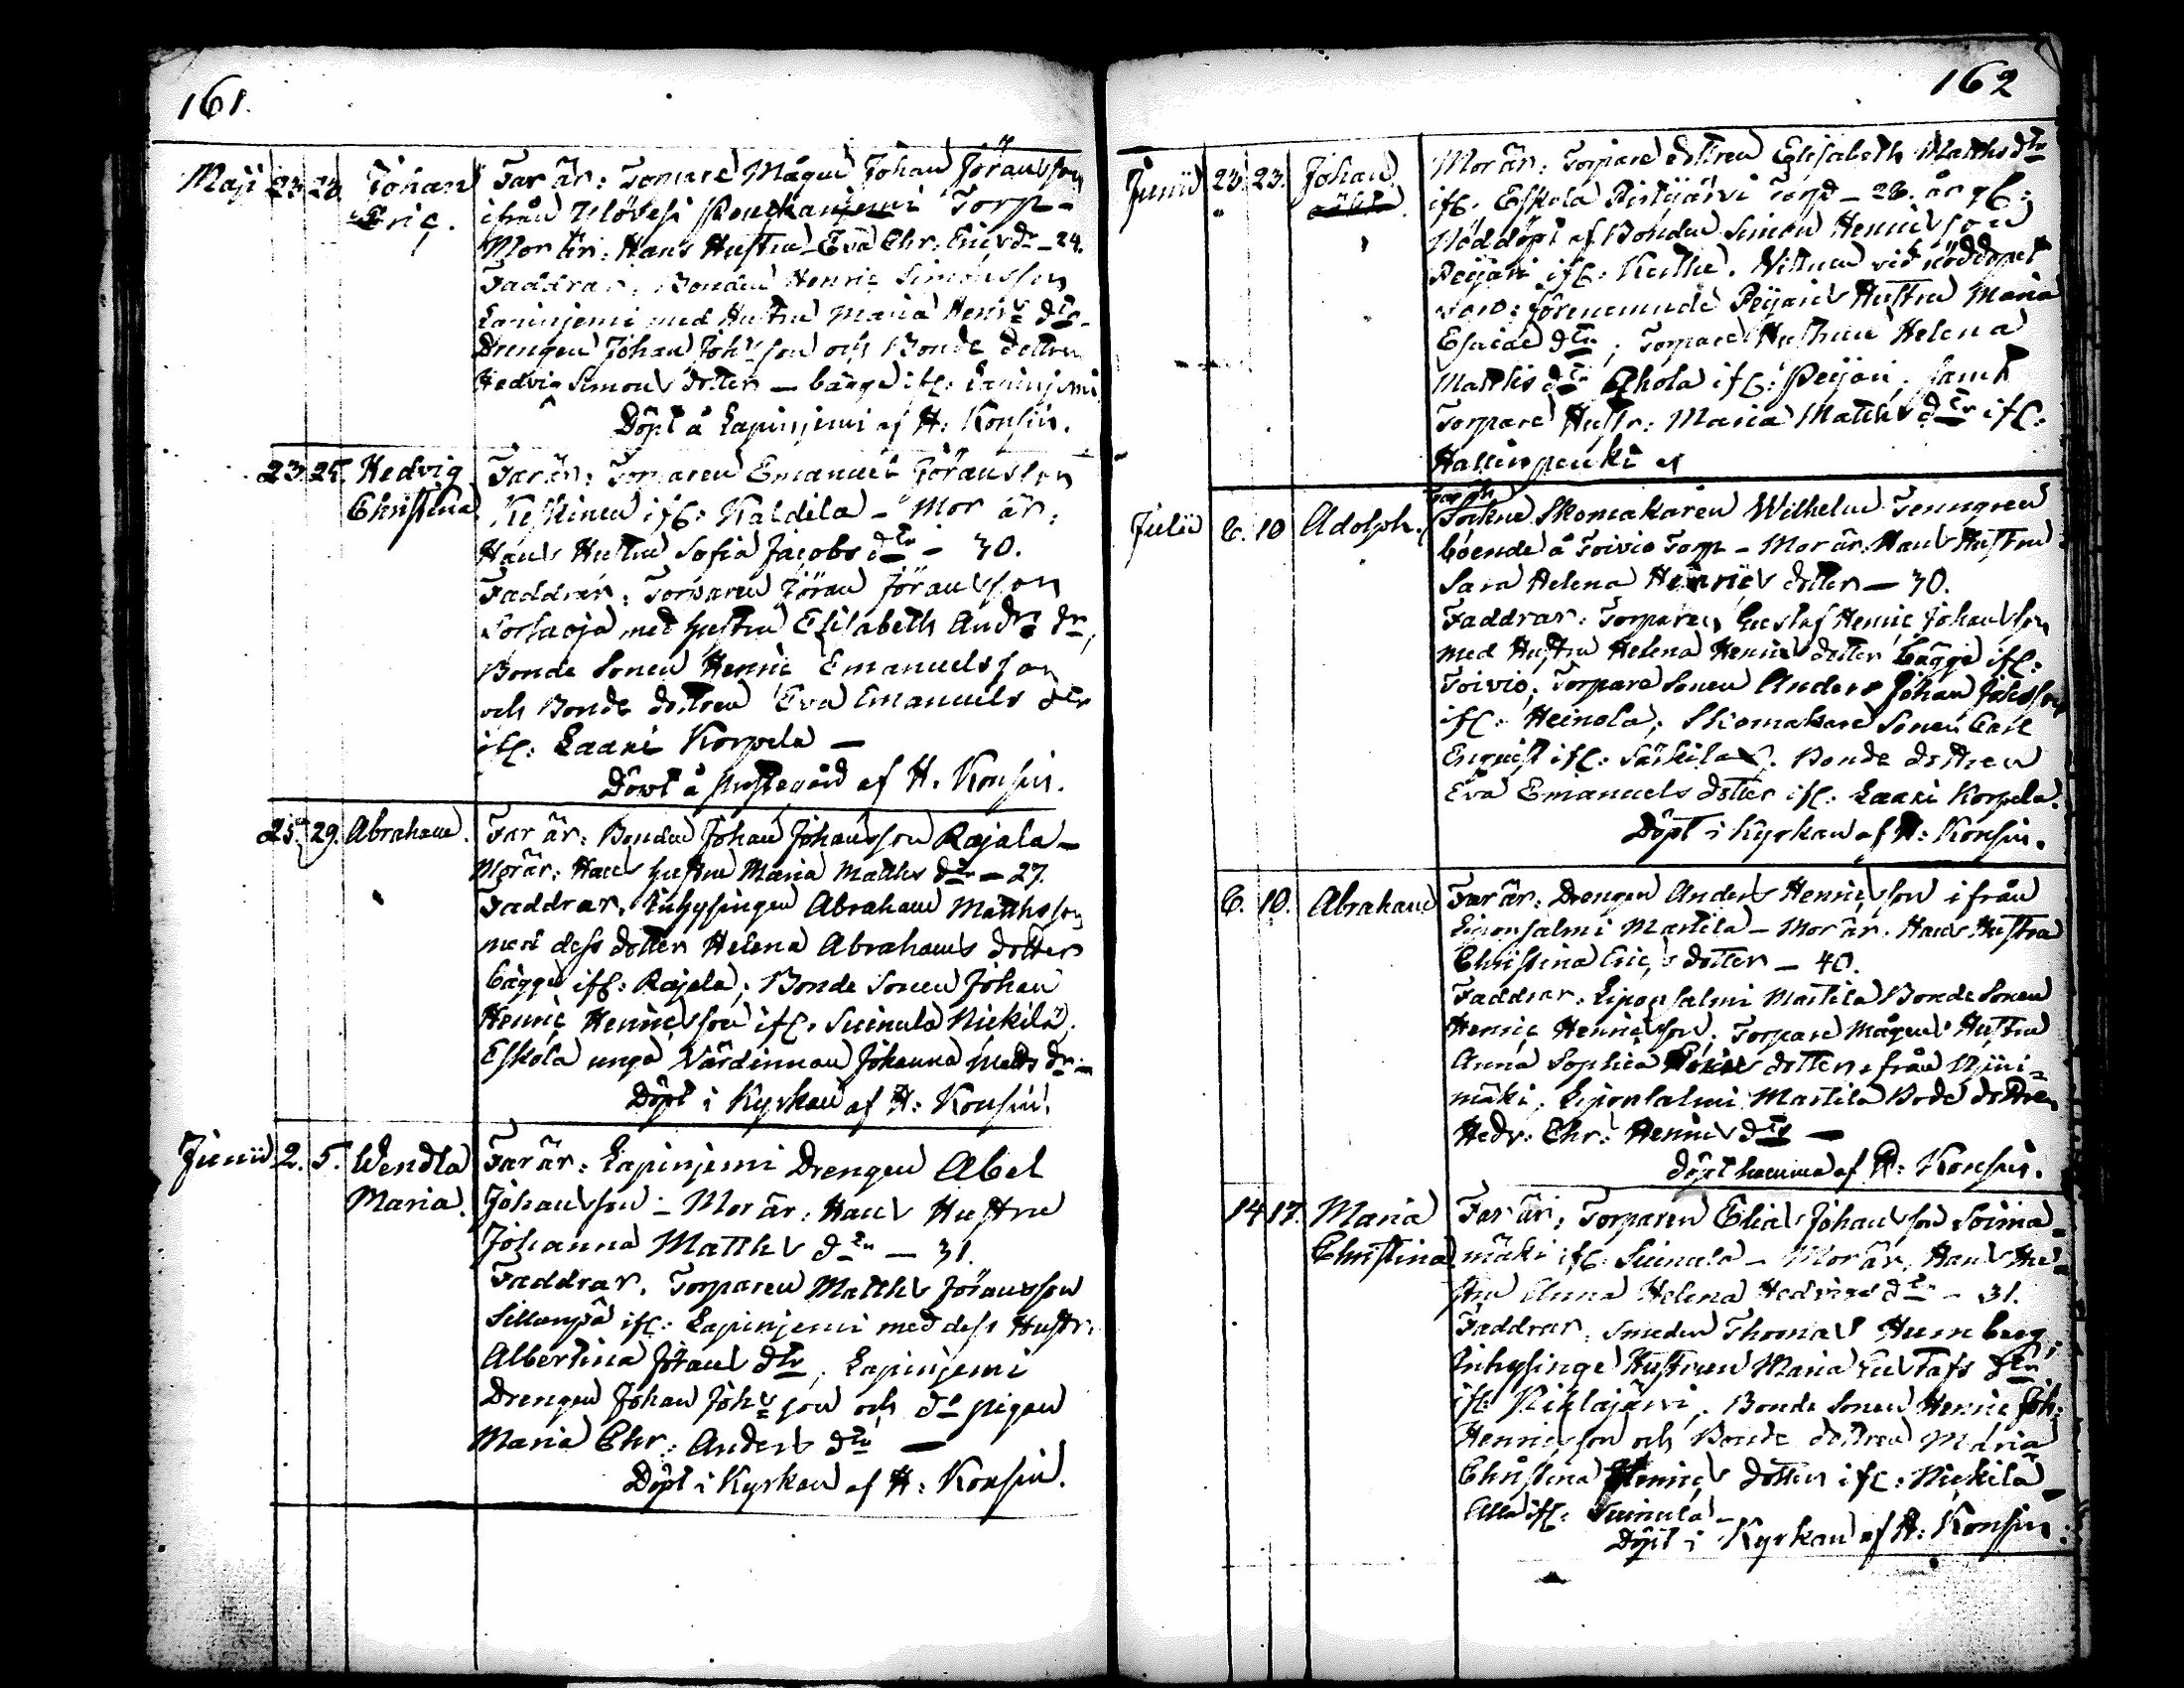 161.
Maji 23. 23. Johan Far är: Torpare Mågen Johan Jöransson
Eric. ifrån Ylöjesi Torp -
Mor är: Hans Hustru Eva Chr: Erics dr - 24.
Faddrar: Bonden Henric Simonsson
Lapinjemi med Hustru Maria Henrs dtr -
Drengen Johan Johsson och Bonde dottren
Hedvig Simons dotter - bägge ifr: Lapinjemi
Döpt å Lapinjemi af H: Konsin.
23. 25. Hedvig Far är: Torparen Emanuel Jöransson
Christina Keskinen ifr: Kaldila - Mor är:
Hans Hustru Sofia Jacobs dtr - 30.
Faddrar: Torparen Jöran Jöransson
Sorsaoja med hustru Elisabeth Andrs dr,
Bonde Sonen Henric Emanuelsson
och Bonde dottren Eva Emanuels dtr
ifr: Laari Korpela -
Döpt å Prestegård af H. Konsin.
25. 29. Abraham. Far är: Bonden Johan Johansson Rajala -
Mor är: Hans hustru Maria Matths dtr - 27.
Faddrar, Inhysingen Abraham Matthsson
med dess dotter Helena Abrahams dotter
bägge ifr: Rajala; Bonde Sonen Johan
Henric Henricsson ifr: Suinula Nickilä;
Eskola unga Värdinnan Johanna Matts dr -
Döpt i Kyrkan af H: Konsin.
Junii 2. 5. Wendla Far är: Lapinjemi Drengen Abel
Maria. Johansson - Mor är: Hans Hustru
Johanna Matths dtr - 31.
Faddrar. Torparen Matths Jöransson
Sillanpä ifr: Lapinjemi med dess Hustr:
Albertina Jörans dtr, Lapinjemi
Drengen Johan Johsson och do pigan
Maria Chr: Anders dtr -
Döpt i Kyrkan af H: Konsin.
162
Junii 23. 23. Johan Mor är: Torpare dottren Elisabeth Matths dtr
ifr. Eskola Torp - 28. år gl:
Nöddöpt af Bonden Simon Henricsson
Peijari ifr: . Vittnen vid nöddopet
voro: förenemnde Peijaris Hustru Maria
Esaiæ dtr; Torpare Hustrun Helena
Matths dtr Ahola ifr: Peijari; samt
Torpare Hustr: Maria Matths dtr ifr:
Hallinpenki
Julii 6. 10 Adolph. Far är
Sockne Skomakaren Wilhelm Tenngren
boende å Toivio Torp - Mor är: Hans Hustru
Sara Helena Henrics dotter - 30.
Faddrar: Torparen Gustaf Henric Johansson
med Hustru Helena Henrics dotter bägge ifr:
Toivio; Torpare Sonen Anders Johan
ifr: Heinola; Skomakare Sonen Carl
Enqvist ifr: Särkilax. Bonde dottren
Eva Emanuels dotter ifr: Laari Korpela.
Döpt i Kyrkan af H: Konsin.
6. 10. Abraham Far är: Drengen Anders Henricsson ifrån
Liponsalmi Martila - Mor är. Hans Hustru
Christina Erics dotter - 40.
Faddrar: Liponsalmi Martila Bonde Sonen
Henric Henricsson; Torpare Mågens Hustru
Anna Sophia dotter från Nyni-
mäki, Liponsalmi Martila Bode dottren
Hedv: Chr: Henrics dtr -
döpt hemma af H: Konsin.
14 17. Maria Far är: Torparen Elias Johansson Soima-
Christina mäki ifr. Suinula - Mor är, Hans Hu-
stru Anna Helena Hedrics dtr - 31.
Faddrar, Smeden Thomas Humberg,
Inhysinge Hustrun Maria Gustafs dtr
ifr: Pihlajärvi; Bonde Sonen Henric Joh:
Henricsson och Bonde dottren Maria
Christina Henrics dotter ifr: Nickilä
Alla ifr: Suinula -
Döpt i Kyrkan af H: Konsin: